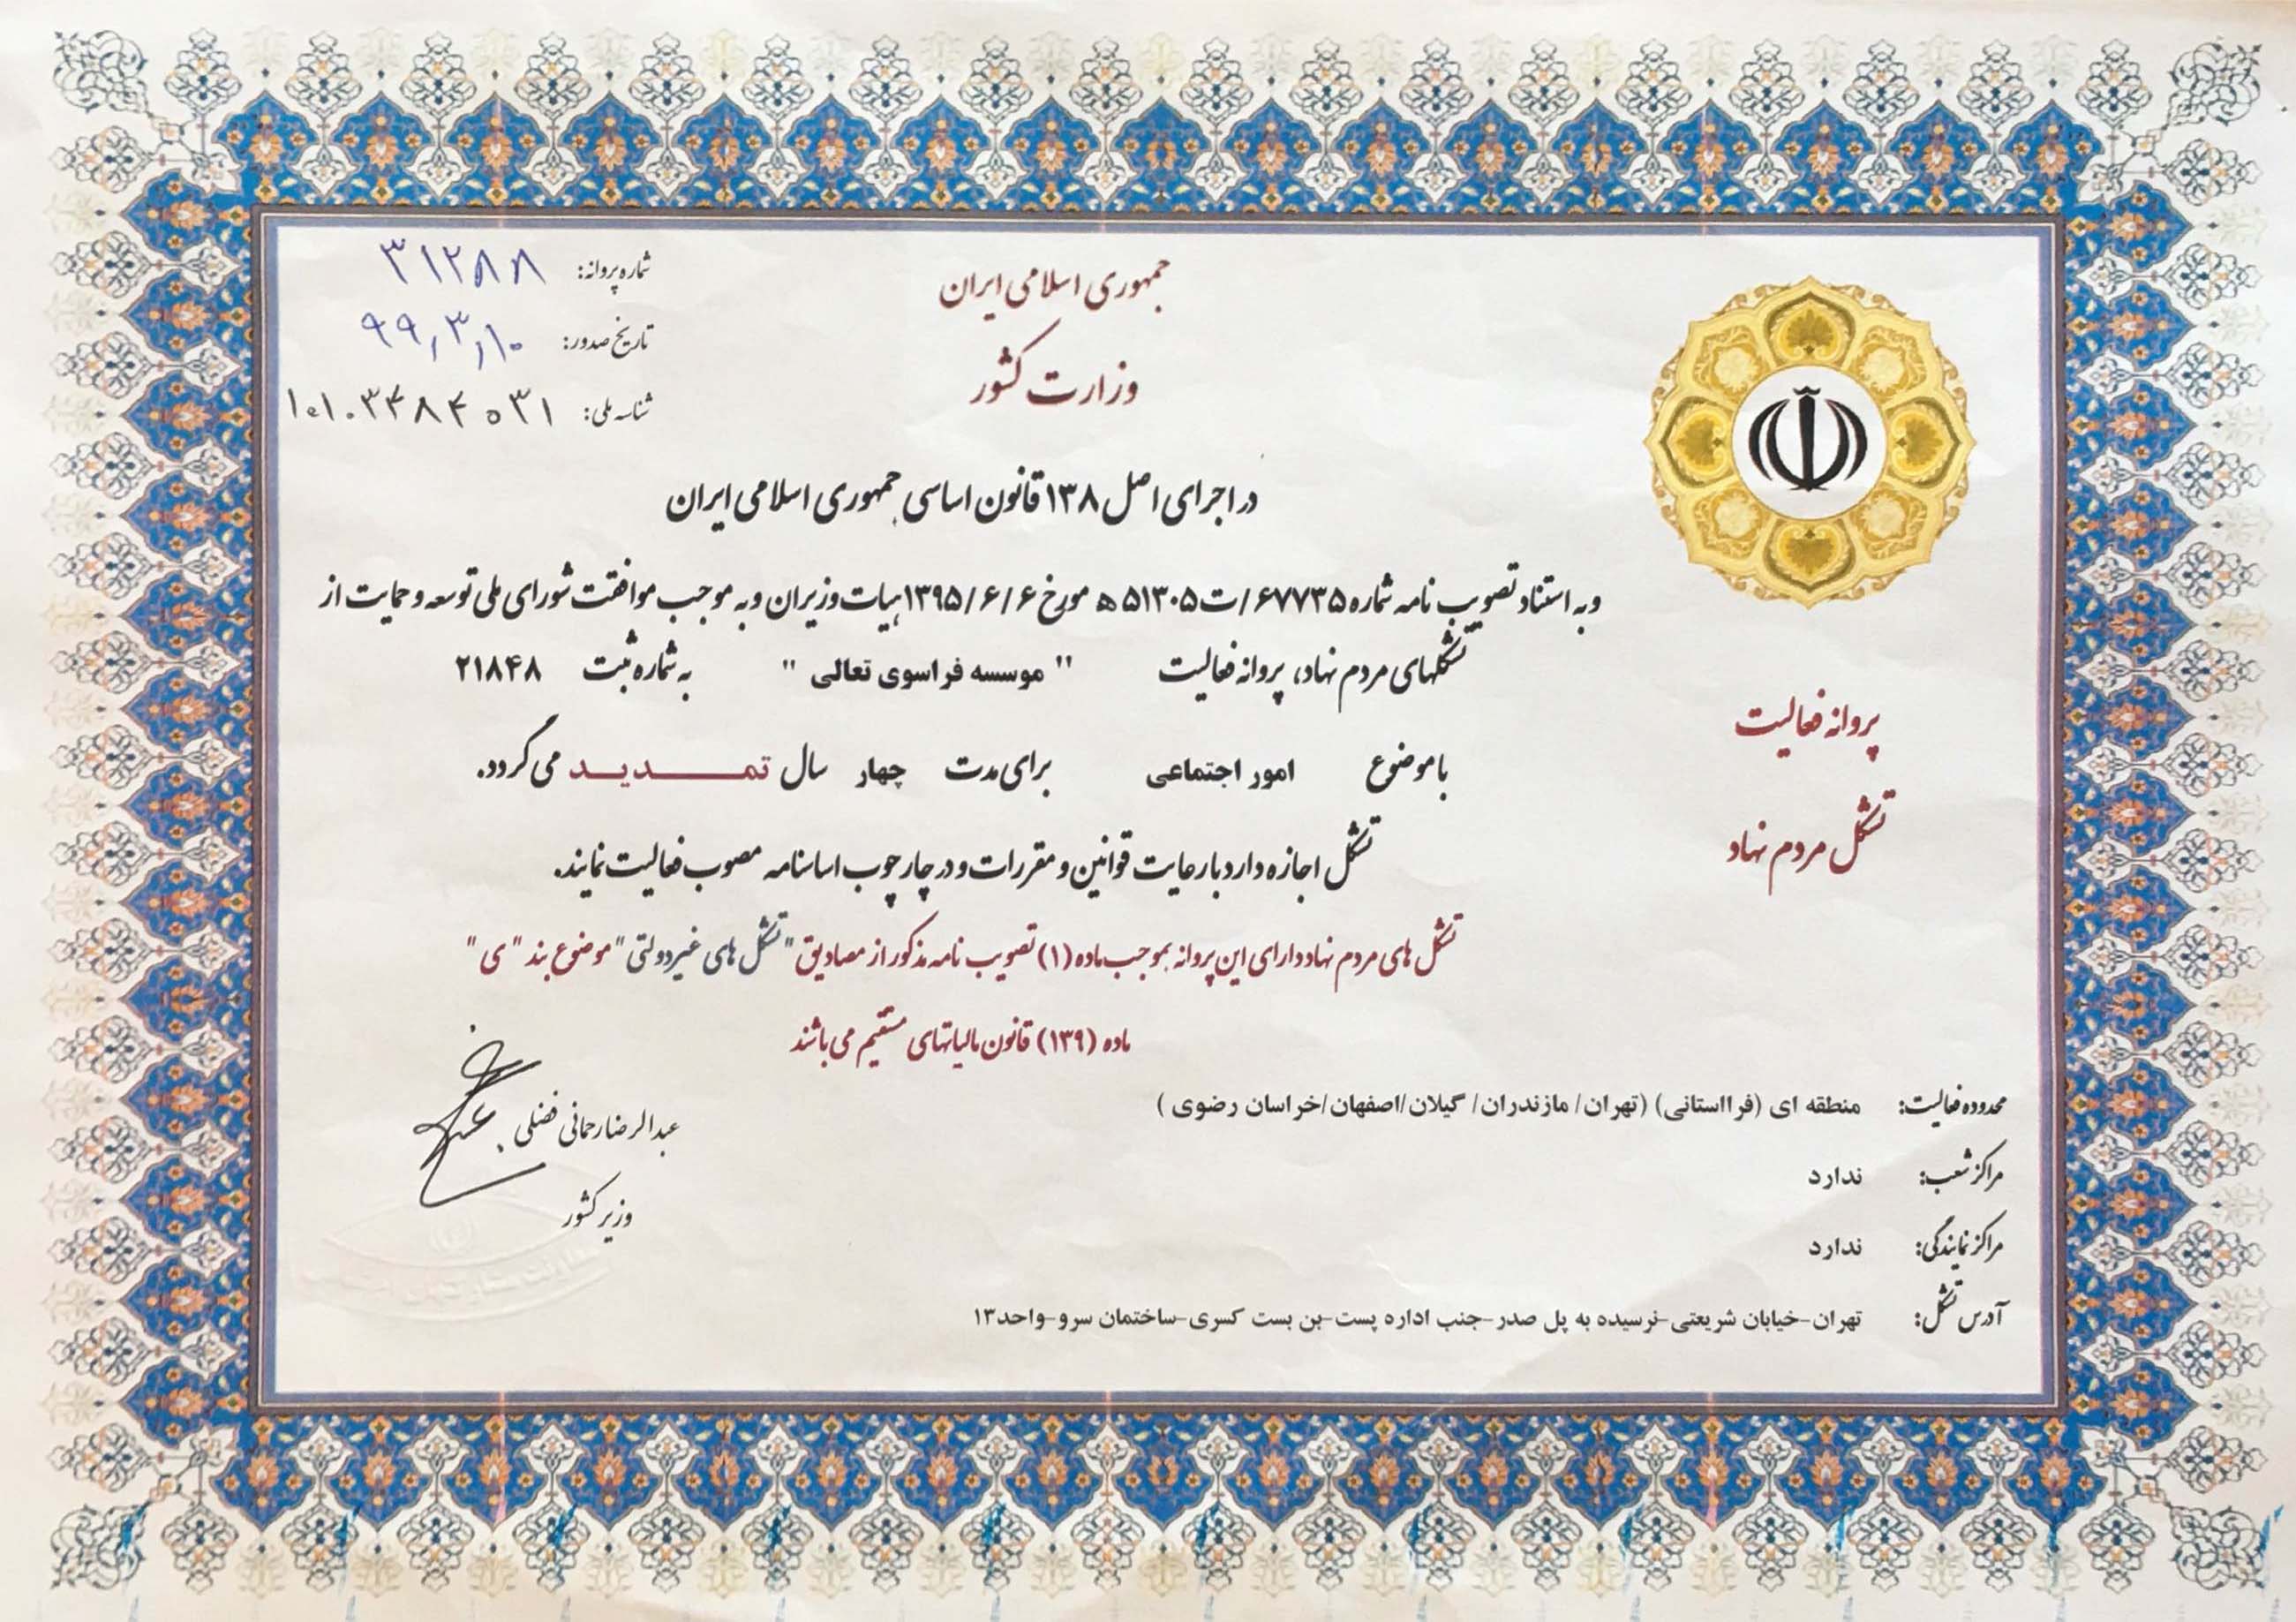 جمهوری اسلامی ایران
وزارت کشور
شماره پروانه: ۳۱۲۸۸
تاریخ صدور: ۹۹٫۳٫۱۰
شناسه ملی: ۱۰۱۰۳۴۸۴۰۳۱
در اجرای اصل ۱۳۸ قانون اساسی جمهوری اسلامی ایران
و به استناد تصویب نامه شماره ۶۷۷۳۵/ت۵۱۳۰۵ ه مورخ ۱۳۹۵/۶/۶ هیات وزیران و به موجب موافقت شورای ملی توسعه و حمایت از
تشکلهای مردم نهاد، پروانه فعالیت " موسسه فراسوی تعالی " به شماره ثبت ۲۱۸۴۸
با موضوع امور اجتماعی برای مدت چهار سال تمـدیـد می گردد.
تشکل اجازه دارد با رعایت قوانین و مقررات و در چارچوب اساسنامه مصوب فعالیت نمایند.
تشکل های مردم نهاد دارای این پروانه بموجب ماده (۱) تصویب نامه مذکور از مصادیق "تشکل های غیردولتی" موضوع بند "ی"
ماده (۱۳۹) قانون مالیاتهای مستقیم می باشند
پروانه فعالیت
تشکل مردم نهاد
عبدالرضا رحمانی فضلی
وزیر کشور
محدوده فعالیت: منطقه ای (فرااستانی) (تهران/ مازندران/ گیلان/اصفهان/خراسان رضوی )
مراکز شعب: ندارد
مراکز نمایندگی: ندارد
آدرس تشکل: تهران-خیابان شریعتی-نرسیده به پل صدر-جنب اداره پست-بن بست کسری-ساختمان سرو-واحد۱۳